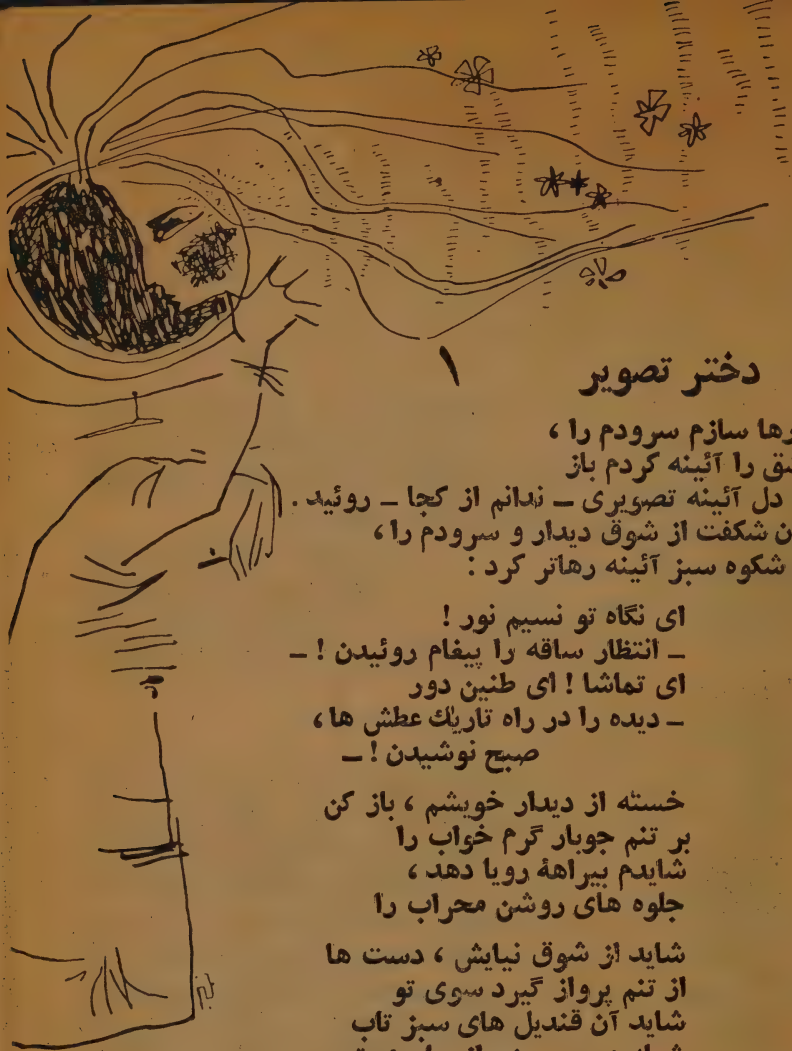 ۱
دختر تصویر
سازم سرودم را ،
را آئینه کردم باز
دل آئینه تصویری ــ ندانم از کجا ــ روئید .
شکفت از شوق دیدار و سرودم را ،
شکوه سبز آئینه رهاتر کرد :
ای نگاه تو نسیم نور !
ــ انتظار ساقه را پیغام روئیدن ! ــ
ای تماشا ! ای طنین دور
ــ دیده را در راه تاریك عطش ها ،
صبح نوشیدن ! ــ
خسته از دیدار خویشم ، باز کن
بر تنم جوبار گرم خواب را
شایدم بیراههٔ رویا دهد ،
جلوه های روشن محراب را
شاید از شوق نیایش ، دست ها
از تنم پرواز گیرد سوی تو
شاید آن قندیل های سبز تاب